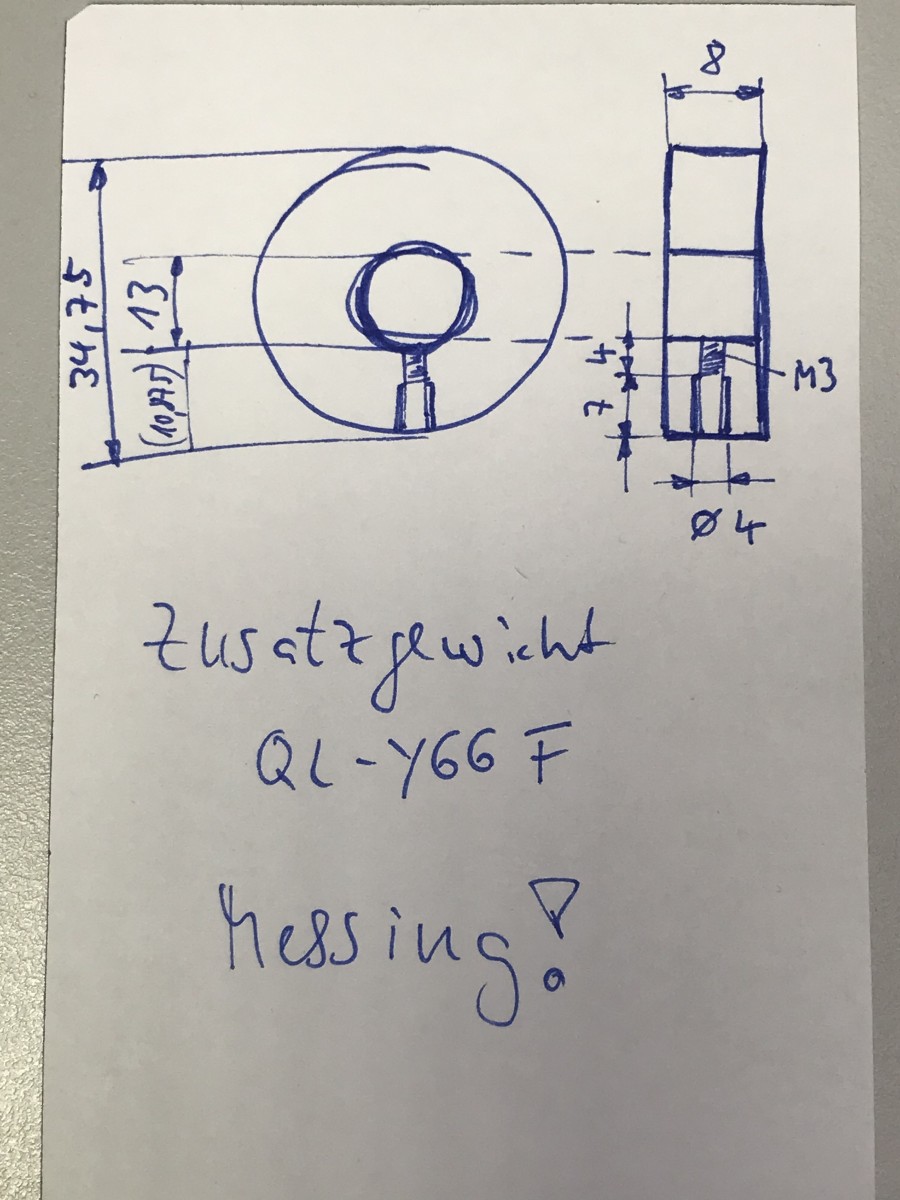 8
34,75
13
(10,875)
4
7
M3
Ø 4
Zusatzgewicht
QL-Y66 F
Messing!